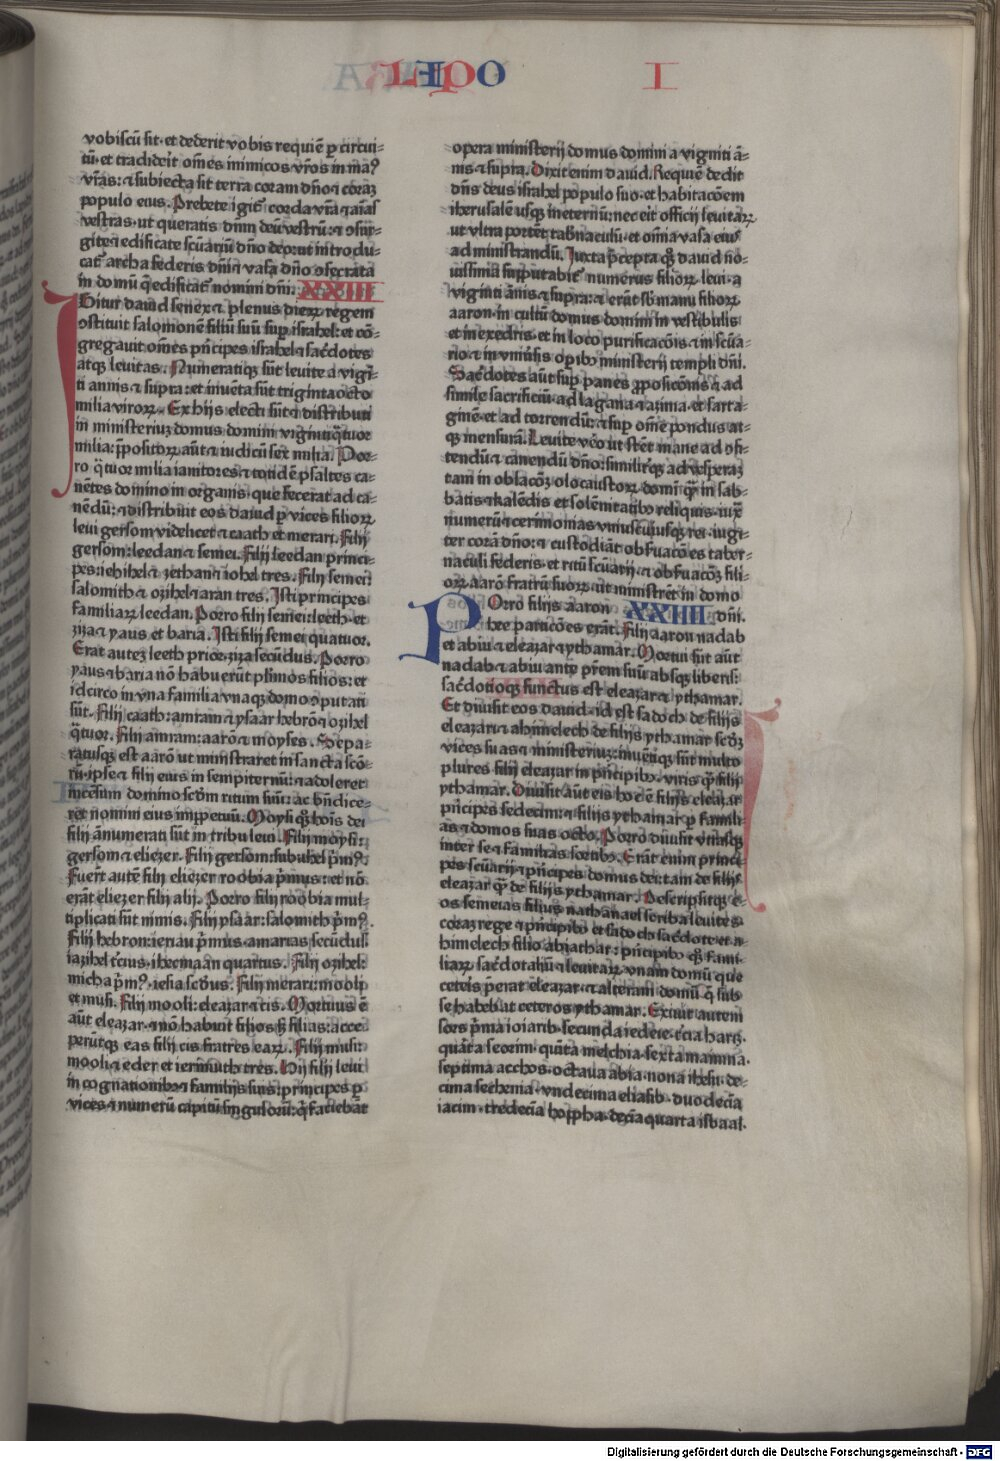 I
vobiscū sit· et dederit vobis requiē p circui-
tū· et tradiderit om̄es inimicos vr̄os in ma⁹
vr̄as: ⁊ subiecta sit terra coram dn̄o ⁊ corā
populo eius. Prebete igit᷑ corda vr̄a ⁊ aīas
vestras· ut queratis dn̄m deū vestrū: ⁊ ↄsur-
gite ⁊ edificate scūariū dn̄o deo: ut introdu-
cat᷑ archa federis dn̄i ⁊ vasa dn̄o ↄsecrata
in domū q̄ edificat᷑ nomini dn̄i. XXIII
Igitur dauid senex ⁊ plenus dierꝝ regem
ↄstituit salomonē filiū suū sup israhel: et cō-
gregauit om̄es pn̄cipes israhel ⁊ sac̄dotes
atq leuitas. Numeratiq; sūt leuite a vigī-
ti annis ⁊ supra: et inuēta sūt triginta octo
milia virorꝝ. Ex hijs electi sūt ⁊ distributi
in ministeriuꝫ domus domini viginti q̄tuor
milia: p̄positorꝝ aūt ⁊ iudicū sex milia. Por-
ro q̄tuor milia ianitores ⁊ totidē psaltes ca-
nētes domino in organis· que fecerat ad ca-
nēdū: ⁊ distribuit eos dauid p vices filiorꝝ
leui gersom videlicet ⁊ caath et merari. Filij
gersom: leedan ⁊ semei. Filij leedan princi-
pes: iehihel ⁊ zethan ⁊ iohel tres. Filij semei:
salomith ⁊ ozihel ⁊ aran tres. Isti principes
familiarꝝ leedan. Porro filij semei: leeth· et
ziza ⁊ yaus et baria. Isti filij semei quatuor.
Erat auteꝫ leeth prior· ziza secūdus. Porro
yaus ⁊ baria nō habuerūt plimos filios: et
idcirco in vna familia vnaq; domo ↄputati
sūt. Filij caath: amram ⁊ ysaar hebrō ⁊ ozihel
q̄tuor. Filij amram: aarō ⁊ moyses. Sepa-
ratusq; est aarō ut ministraret in sancta scō-
rū· ipse ⁊ filij eius in sempiternū: ⁊ adoleret
incēsum domino scd̄m ritum suū: ac bn̄dice-
ret nomini eius imppetuū. Moysi q̄ꝫ hoīs dei
filij ānumerati sūt in tribu leui. Filij moysi:
gersom ⁊ eliezer. Filij gersom: subuhel p̄m⁹.
Fuer̄t autē filij eliezer roobia p̄mus: et nō
erāt eliezer filij alij. Porro filij roobia mul-
tiplicati sūt nimis. Filij ysaar: salomith p̄m⁹.
Filij hebron: ieriau p̄mus· amarias secūdus
iazihel tc̄ius· ihecmaan quartus. Filij ozihel:
micha p̄m⁹· iesia scd̄us. Filij merari: mooli
et musi. Filij mooli: eleazar ⁊ cis. Mortuus ē
aūt eleazar· ⁊ nō habuit filios sꝫ filias: acce-
perūtq; eas filij cis fratres earꝝ. Filij musi:
mooli ⁊ eder et ierimuth tres. Hij filij leui
in cognationibꝫ ⁊ familijs suis: principes p
vices ⁊ numerū capitū singulorū: q̄ faciebāt
opera ministerij domus domini a viginti ā-
nis ⁊ supra. Dixit enim dauid. Requiē dedit
dn̄s deus israhel populo suo· et habitacōem
iherusalē usq; in eternū; nec erit officij leuitarꝝ
ut vltra portēt tab̄naculū· et om̄ia vasa eius
ad ministrandū. Juxta p̄cepta q̄ꝫ dauid no-
uissima supputabit᷑ numerus filiorꝝ leui· a
viginti ānis ⁊ supra: ⁊ erūt sb manu filiorꝝ
aaron· in cultū domus domini in vestibulis
et in exedris· et in loco purificacōis ⁊ in scūa-
rio ⁊ in vniūsis opibꝫ ministerij templi dn̄i.
Sac̄dotes aūt sup panes ꝓposicōnis ⁊ ad
simile sacrificiū· ad lagana ⁊ azima· et sarta-
ginē· et ad torrendū: ⁊ sup om̄e pondus at-
q; mensurā. Leuite vō ut stēt mane ad ↄfi-
tendū ⁊ canendū dn̄o: similitq; ad vesperaꝫ
tam in oblacōꝫ olocaustorꝝ domī q̄ in sab-
batis ⁊ kalēdis et solēnitatibꝫ reliquis· iux̄
numerū ⁊ cerimonias vniuscuiusq; rei· iugi-
ter corā dn̄o: ⁊ custodiāt obs̄uacōes taber-
naculi federis· et ritū scūarij· ⁊ obs̄uacōꝫ fili-
orꝝ aarō fratrū suorꝝ· ut ministrēt in domo
POrro filijs aaron XXIIII dn̄i.
hee particōes erāt. Filij aaron nadab
et abiu ⁊ eleazar ⁊ ythamar. Mortui sūt aūt
nadab ⁊ abiu ante pr̄em suū absq; liberis:
sac̄dotioq; functus est eleazar ⁊ ythamar.
Et diuisit eos dauid· id est sadoch de filijs
eleazari ⁊ ahimelech de filijs ythamar scd̄ꝫ
vices suas ⁊ ministeriuꝫ: inuētiq; sūt multo
plures filij eleazar in pn̄cipibꝫ viris q̄ filij
ythamar. Diuisit aūt eis hoc ē filijs eleazar
pn̄cipes sedecim: ⁊ filijs ythamar p famili-
as ⁊ domos suas octo. Porro diuisit vtrasq;
inter se ⁊ familias sortibꝫ. Erāt enim princi-
pes scūarij ⁊ pn̄cipes domus dei: tam de filijs
eleazar q̄ de filijs ythamar. Descripsitq; e-
os semeias filius nathanael scriba leuites
coraꝫ rege ⁊ pn̄cipibꝫ et sadoch sac̄dote et a-
himelech filio abiathar: pn̄cipibꝫ q̄ꝫ fami-
liarꝝ sac̄dotaliū ⁊ leuitarꝝ vnam domū que
ceteris p̄erat eleazar· ⁊ alteram domū q̄ sub
se habebat ceteros ythamar. Exiuit autem
sors p̄ma ioiarib· secunda iedeie· tc̄ia harꝫ·
quārta seorim· quīta melchia· sexta maimna·
septima acchos· octaua abia· nona ihesu· de-
cima sechenia· vndecima eliasib· duodecīa
iacim· tredecīa hoppha· decīa quarta isbaal·
Digitalisierung gefördert durch die Deutsche Forschungsgemeinschaft - DFG